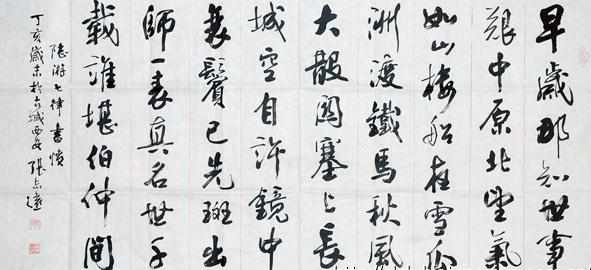 早歲那知世事
艱中原北望氣
如山樓船夜雪瓜
洲渡鐵馬秋風
大散關塞上長
城空自許鏡中
衰鬢已先斑出
師一表真名世千
載誰堪伯仲間
陸游七律書憤
丁亥歲末於古城西安 張